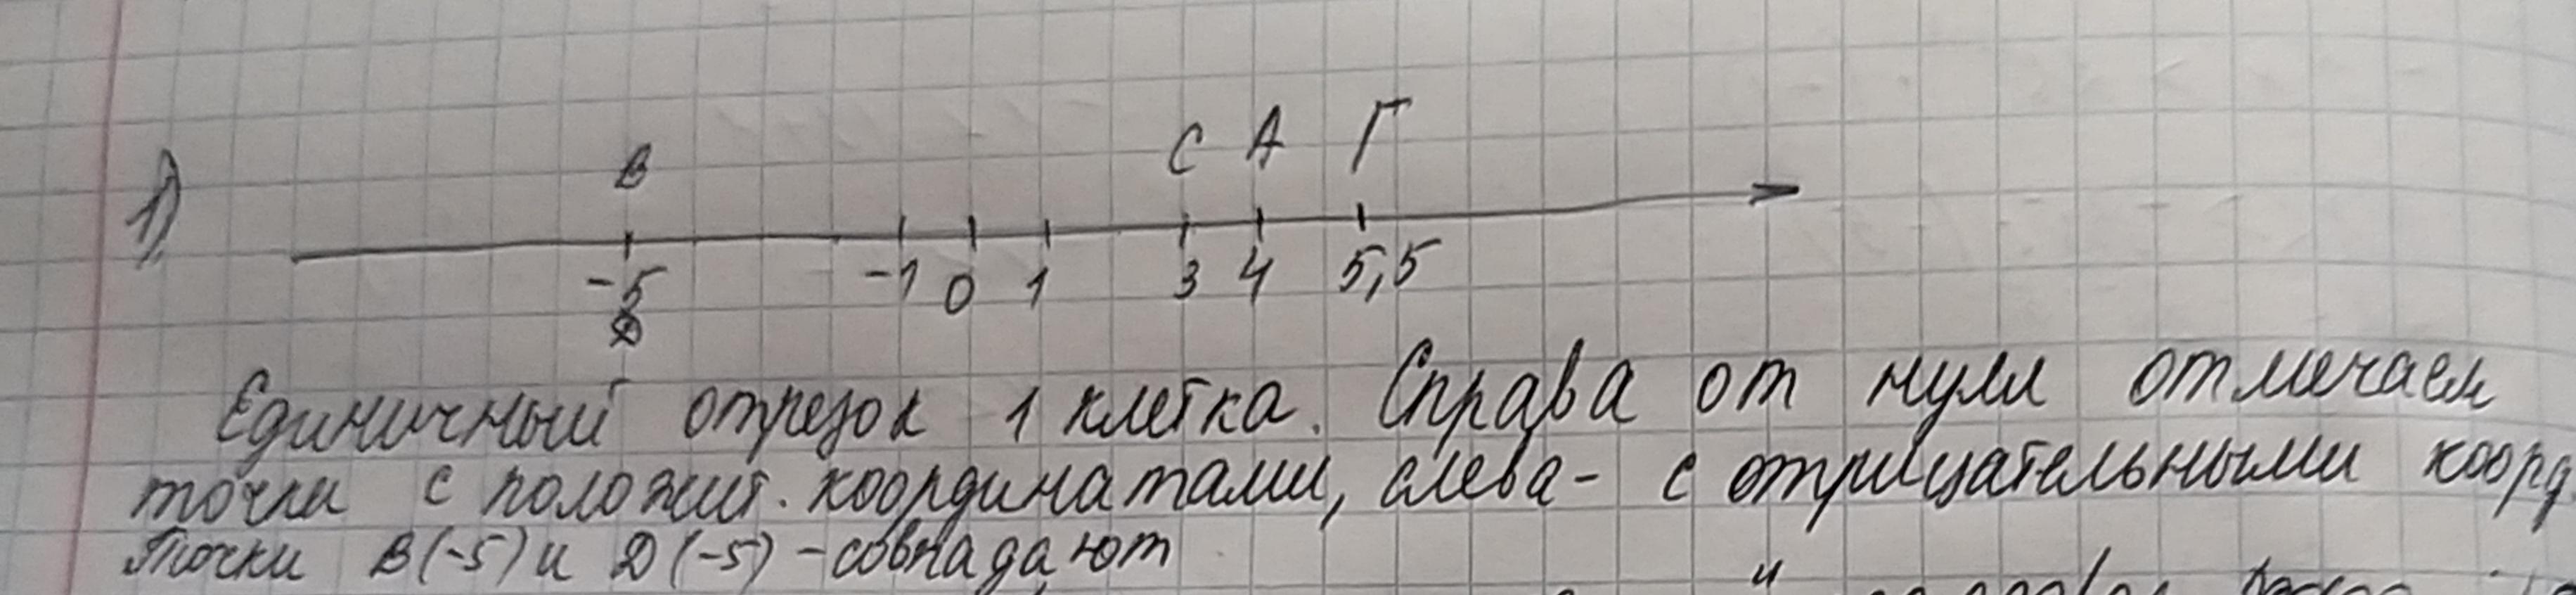 1)
В С А Г
-5 -1 0 1 3 4 5,5
Д
Единичный отрезок 1 клетка. Справа от нуля отмечаем
точки с положит. координатами, слева - с отрицательными коорд
Точки В(-5) и Д(-5) - совпадают